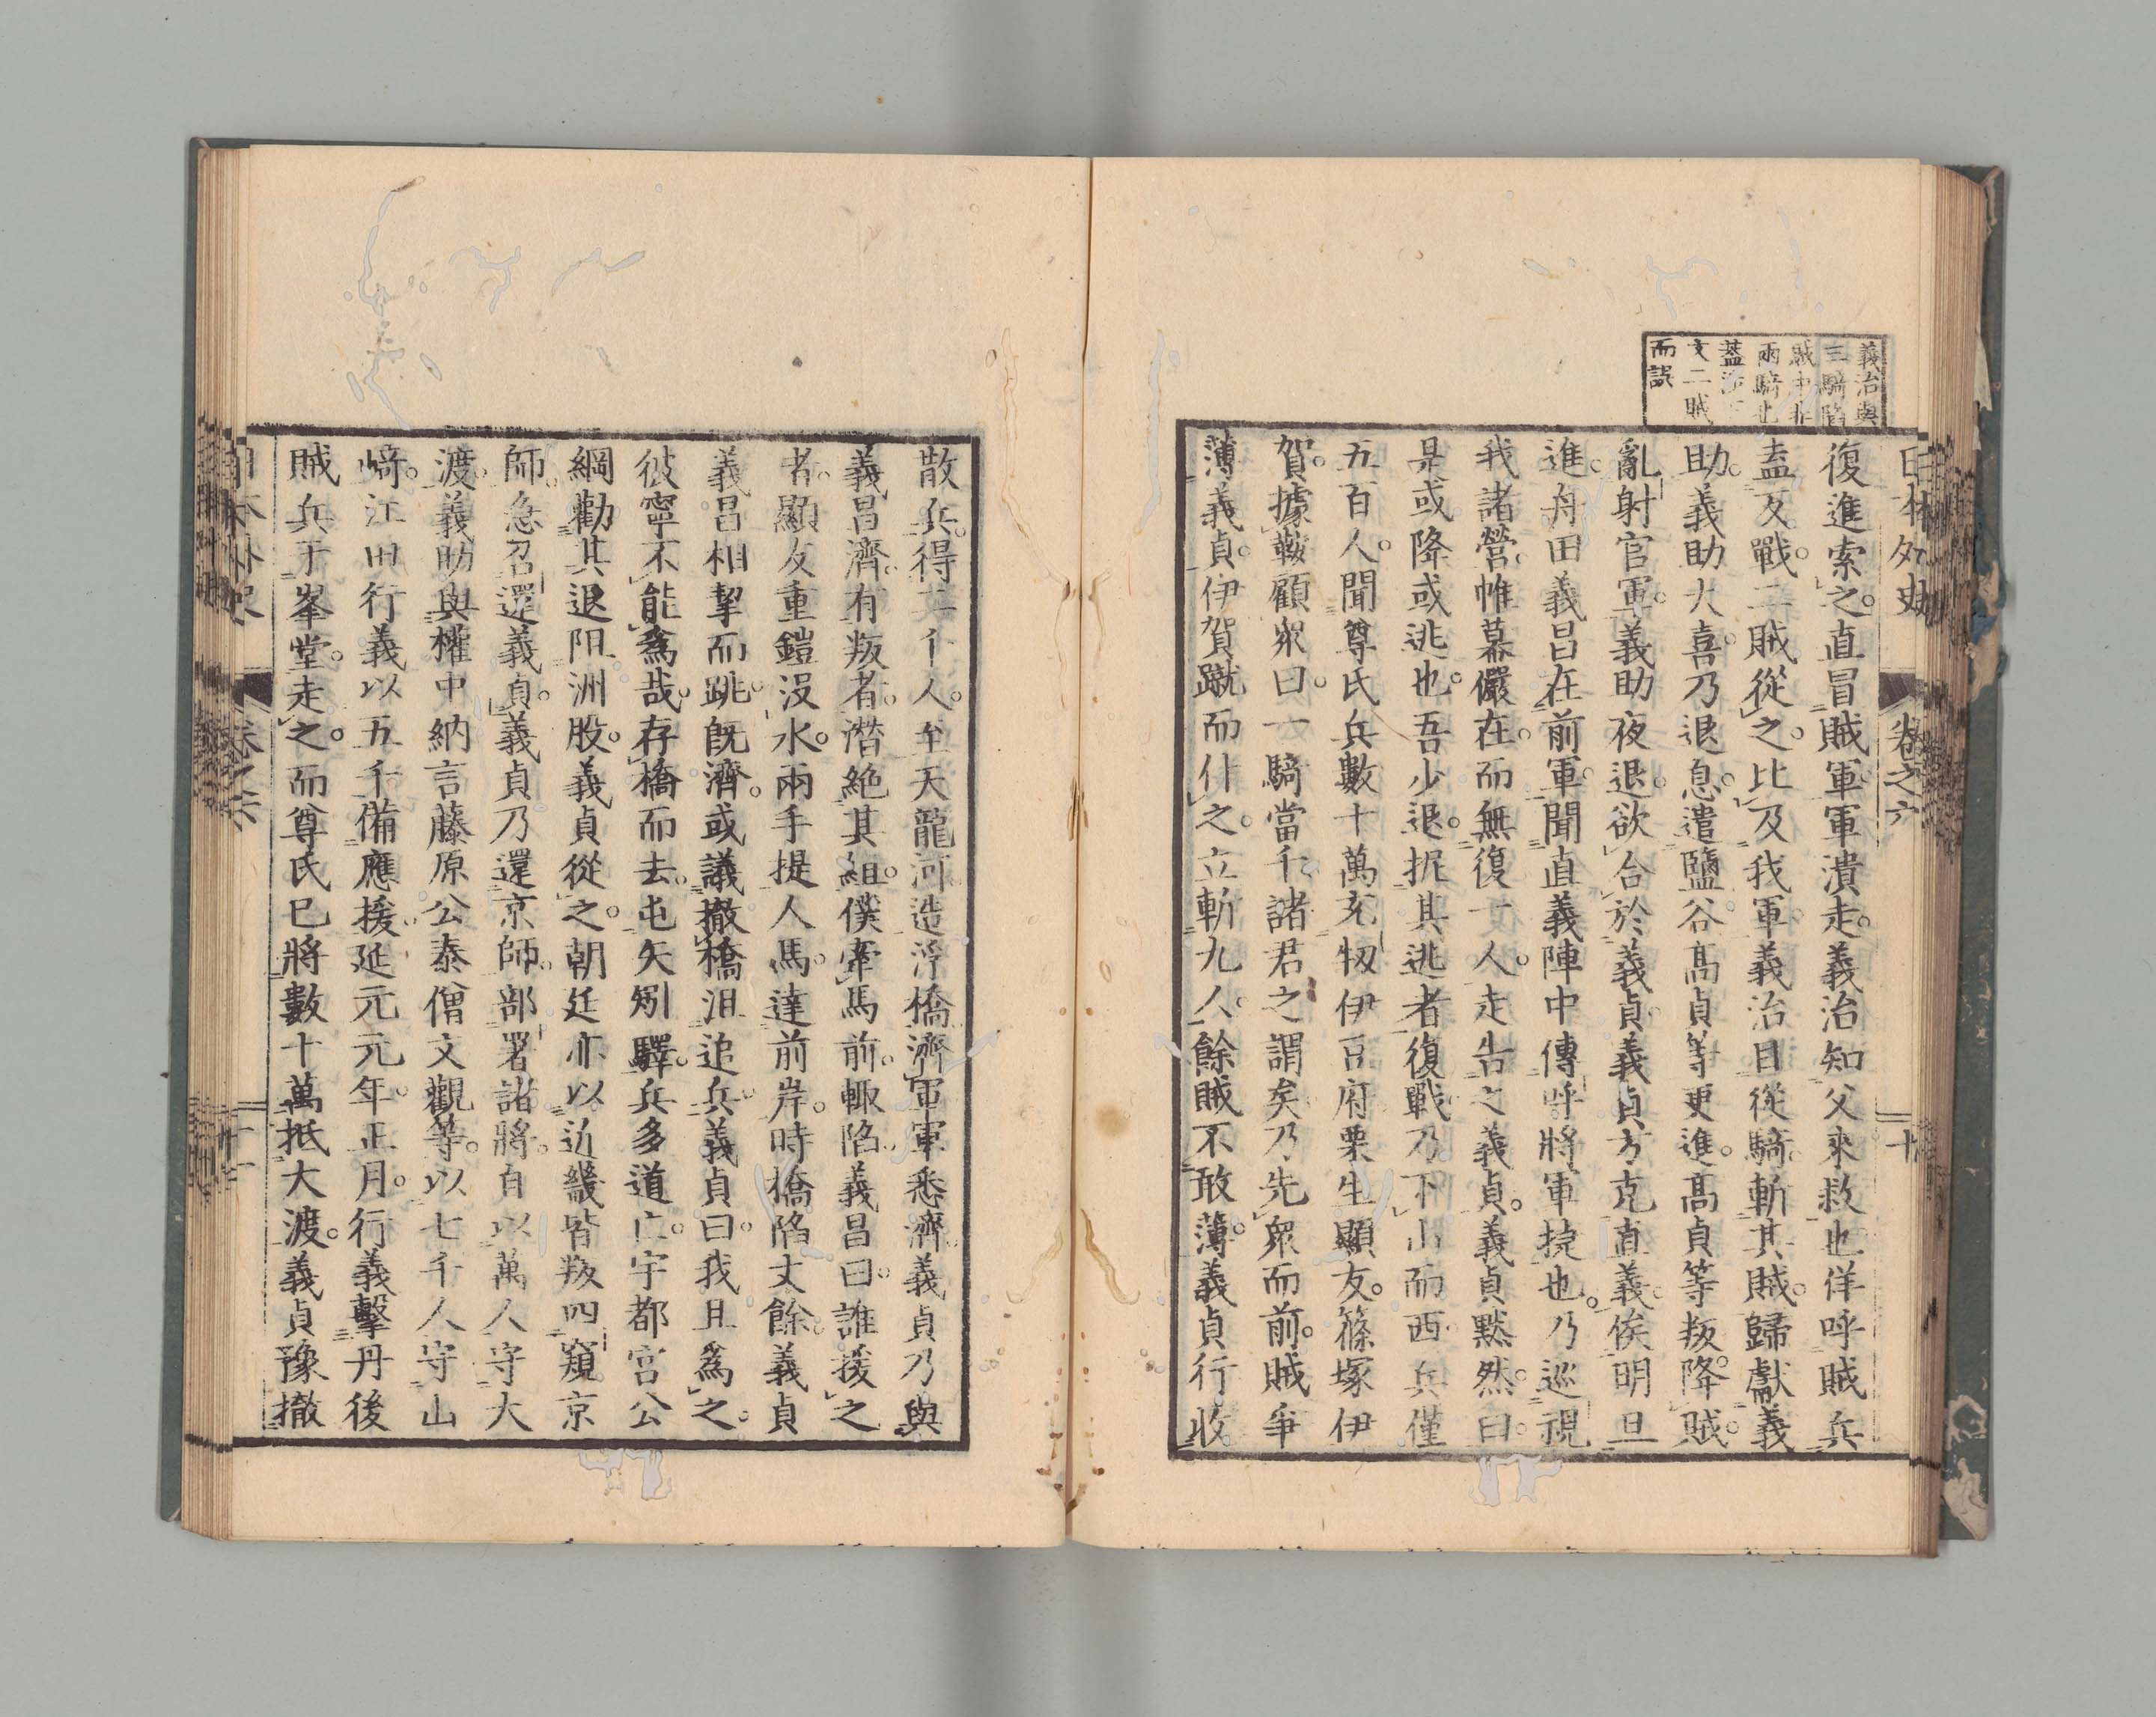 日本外史
卷之六
十
義治與
三騎陷
賊中非
兩騎也
蓋涉下
文二賊
而誤
復進索之。直冒賊軍軍潰走。義治知父來救也佯呼賊兵
盍反戰。二賊從之。比及我軍義治目從騎斬其賊。歸獻義
助。義助大喜。乃退息遣鹽谷高貞等更進。高貞等叛降。賊。
亂射官軍。義助夜退。欲合於義貞義貞方克直義。俟明旦
進。舟田義昌在前軍。聞直義陣中傳呼將軍捷也。乃巡視
我諸營。帷幕儼在。而無復一人。走告之義貞。義貞默然。曰。
是或降或逃也。吾少退。扼其逃者復戰乃下山而西兵僅
五百人。聞尊氏兵數十萬充牣伊豆府栗生顯友。篠塚伊
賀。據鞍顧衆曰。一騎當千。諸君之謂矣乃先衆而前。賊爭
薄義貞。伊賀蹴而仆之。立斬九人。餘賊不敢薄。義貞行收
散兵。得二千人。至天龍河造浮橋濟軍軍悉濟。義貞乃與
義昌濟。有叛者。潛絶其組。僕牽馬前。輙陷。義昌曰。誰援之
者。顯友重鎧沒水。兩手提人馬。達前岸。時橋陷丈餘。義貞
義昌相挈而跳。既濟。或議撤橋沮追兵。義貞曰。我且爲之。
彼寧不能爲哉。存橋而去。屯矢矧驛。兵多道亡。宇都宮公
綱勸其退阻洲股。義貞從之。朝廷亦以近畿皆叛四窺京
師。急召還義貞。義貞乃還京師。部署諸將。自以萬人守大
渡。義助與權中納言藤原公泰僧文觀等。以七千人守山
﨑。江田行義以五千備應援。延元元年。正月。行義擊丹後
賊兵于峯堂。走之。而尊氏已將數十萬抵大渡。義貞豫撤
日本外史
卷之六
十一